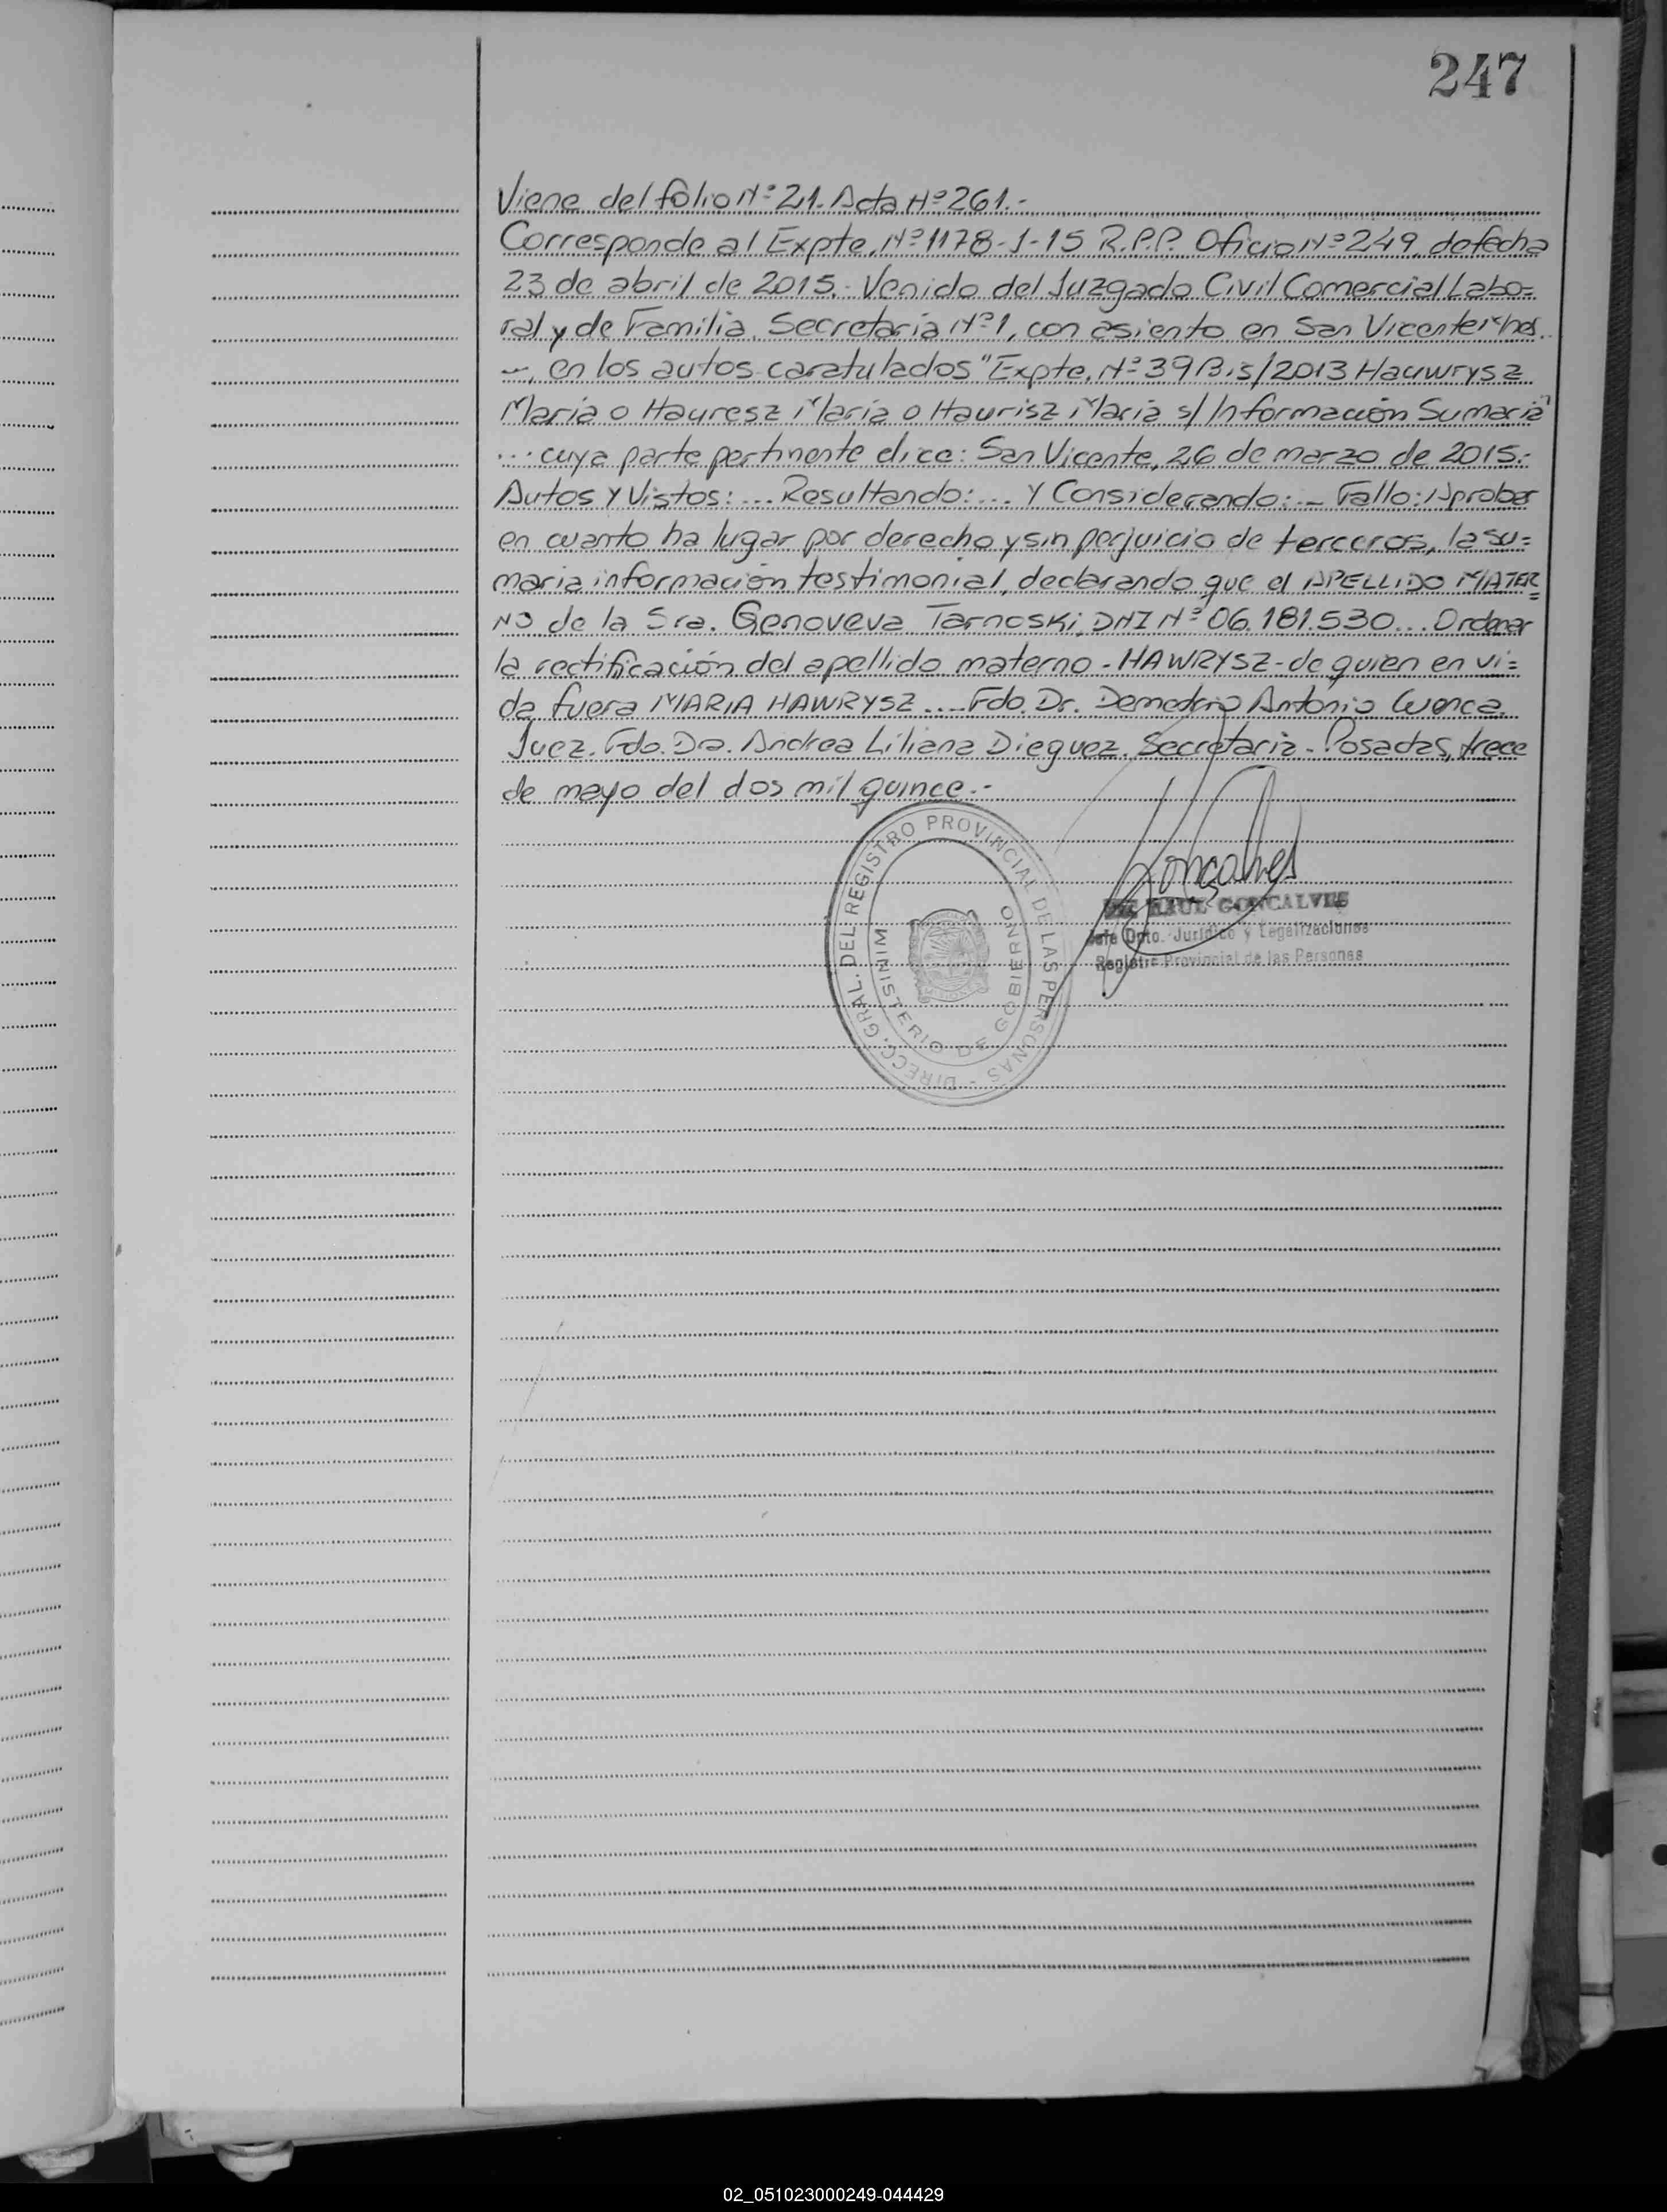 247
Viene del folio Nº 21. Acta Nº 261.-
Corresponde al Expte. Nº 1178-J-15 R.P.P. Oficio Nº 249, de fecha
23 de abril de 2015.- Venido del Juzgado Civil Comercial Labo=
ral y de Familia, Secretaría Nº 1, con asiento en San Vicente
, en los autos caratulados "Expte. Nº 39 Bis/2013 Hauwrysz
María o Hauresz María o Haurisz María s/ Información Sumaria"
... cuya parte pertinente dice: San Vicente, 26 de marzo de 2015.-
Autos y Vistos: ... Resultando: ... Y Considerando: ... Fallo: Aprobar
en cuanto ha lugar por derecho y sin perjuicio de terceros, la su=
maria información testimonial, declarando que el APELLIDO MATER=
NO de la Sra. Genoveva Tarnoski, DNI Nº 06.181.530... Ordenar
la rectificación del apellido materno - HAWRYSZ - de quien en vi=
da fuera MARIA HAWRYSZ .... Fdo. Dr. Demetrio Antonio Cuenca.
Juez. Fdo. Dra. Andrea Liliana Dieguez. Secretaria - Posadas, trece
de mayo del dos mil quince.-
DIRECC. GRAL. DEL REGISTRO PROVINCIAL DE LAS PERSONAS -
MINISTERIO DE GOBIERNO
Gonçalves
RAUL GONCALVES
Jefe Dpto. Jurídico y Legalizaciones
Registro Provincial de las Personas
02_051023000249-044429